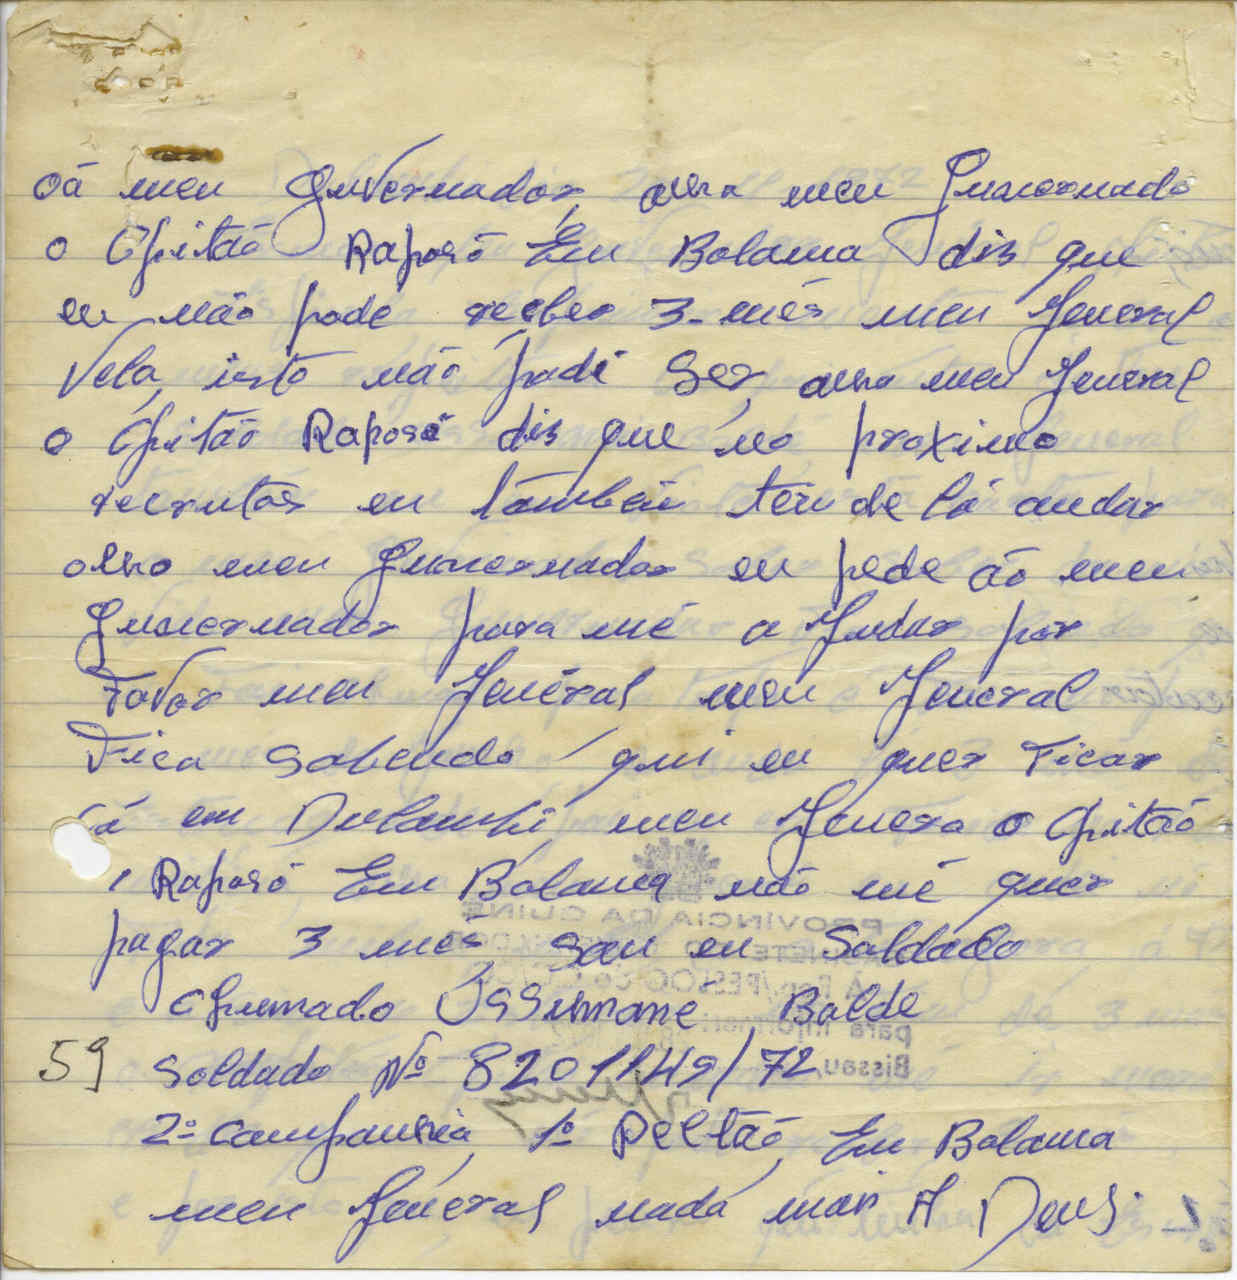 oá meu Guvernador, olha meu Guvernado
o Cpitão Raposó Em Bolama dis que
eu não pode recber 3-més meu General
Vela, isto não podi Ser, olha meu General
o Cpitão Raposó dis que no proximo
recrutás eu também tem de lá andar
olho meu Guvernador eu pede ão meu
Guvernador para mé a Judar por
Favor meu Jenéral meu General
Fica Sabendo qui eu quer Ficar
cá em meu Jenera o Cpitão
Raposó Em Bolama não mé quer
pagar 3 més, Sou eu Soldado
Chumado Ussumane, Balde
59 Soldado Nº 8201149/72,
2ª Companhia, 1º Peltão, Em Bolama
meu General nada mais A Deus
PROVINCIA DA GUINÉ
para
Bissau,